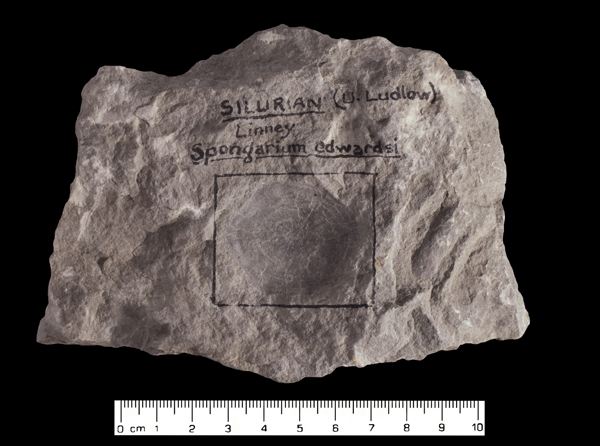 SILURIAN (U. Ludlow)
Linney
Spongarium edwardsi
0 cm 1 2 3 4 5 6 7 8 9 10